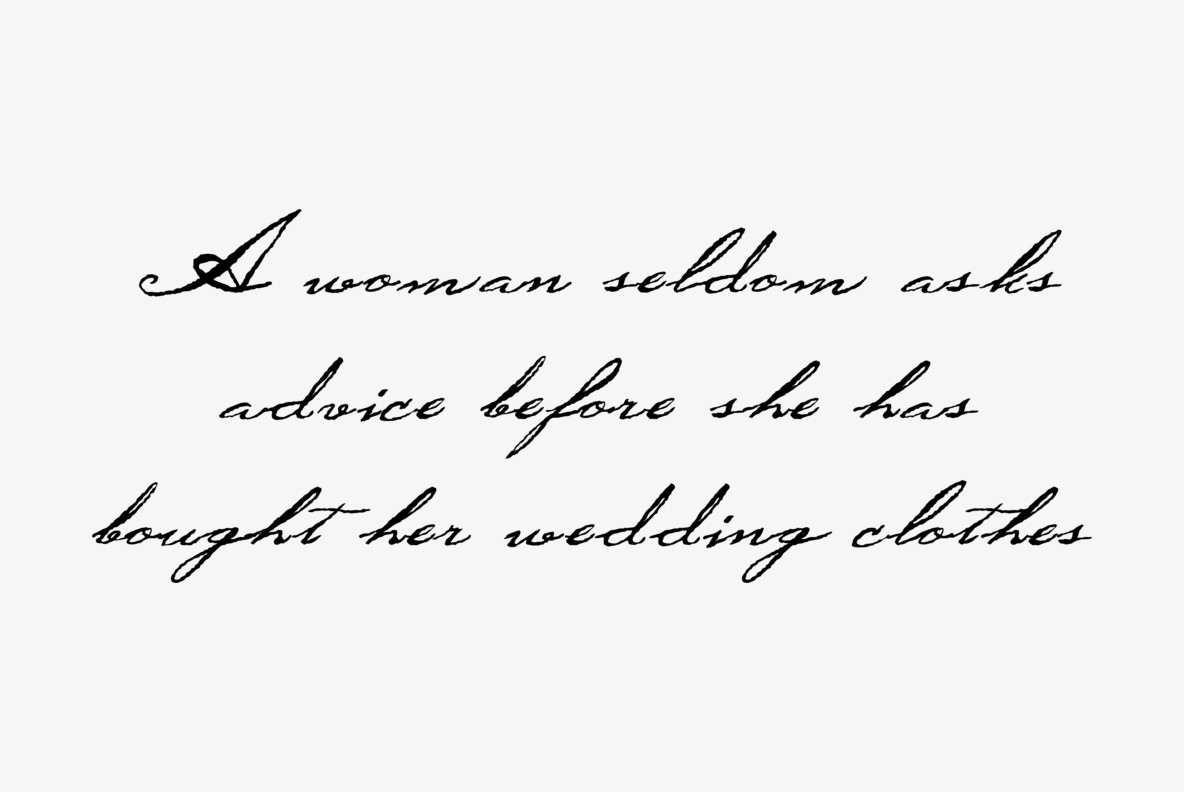 A woman seldom asks
advice before she has
bought her wedding clothes